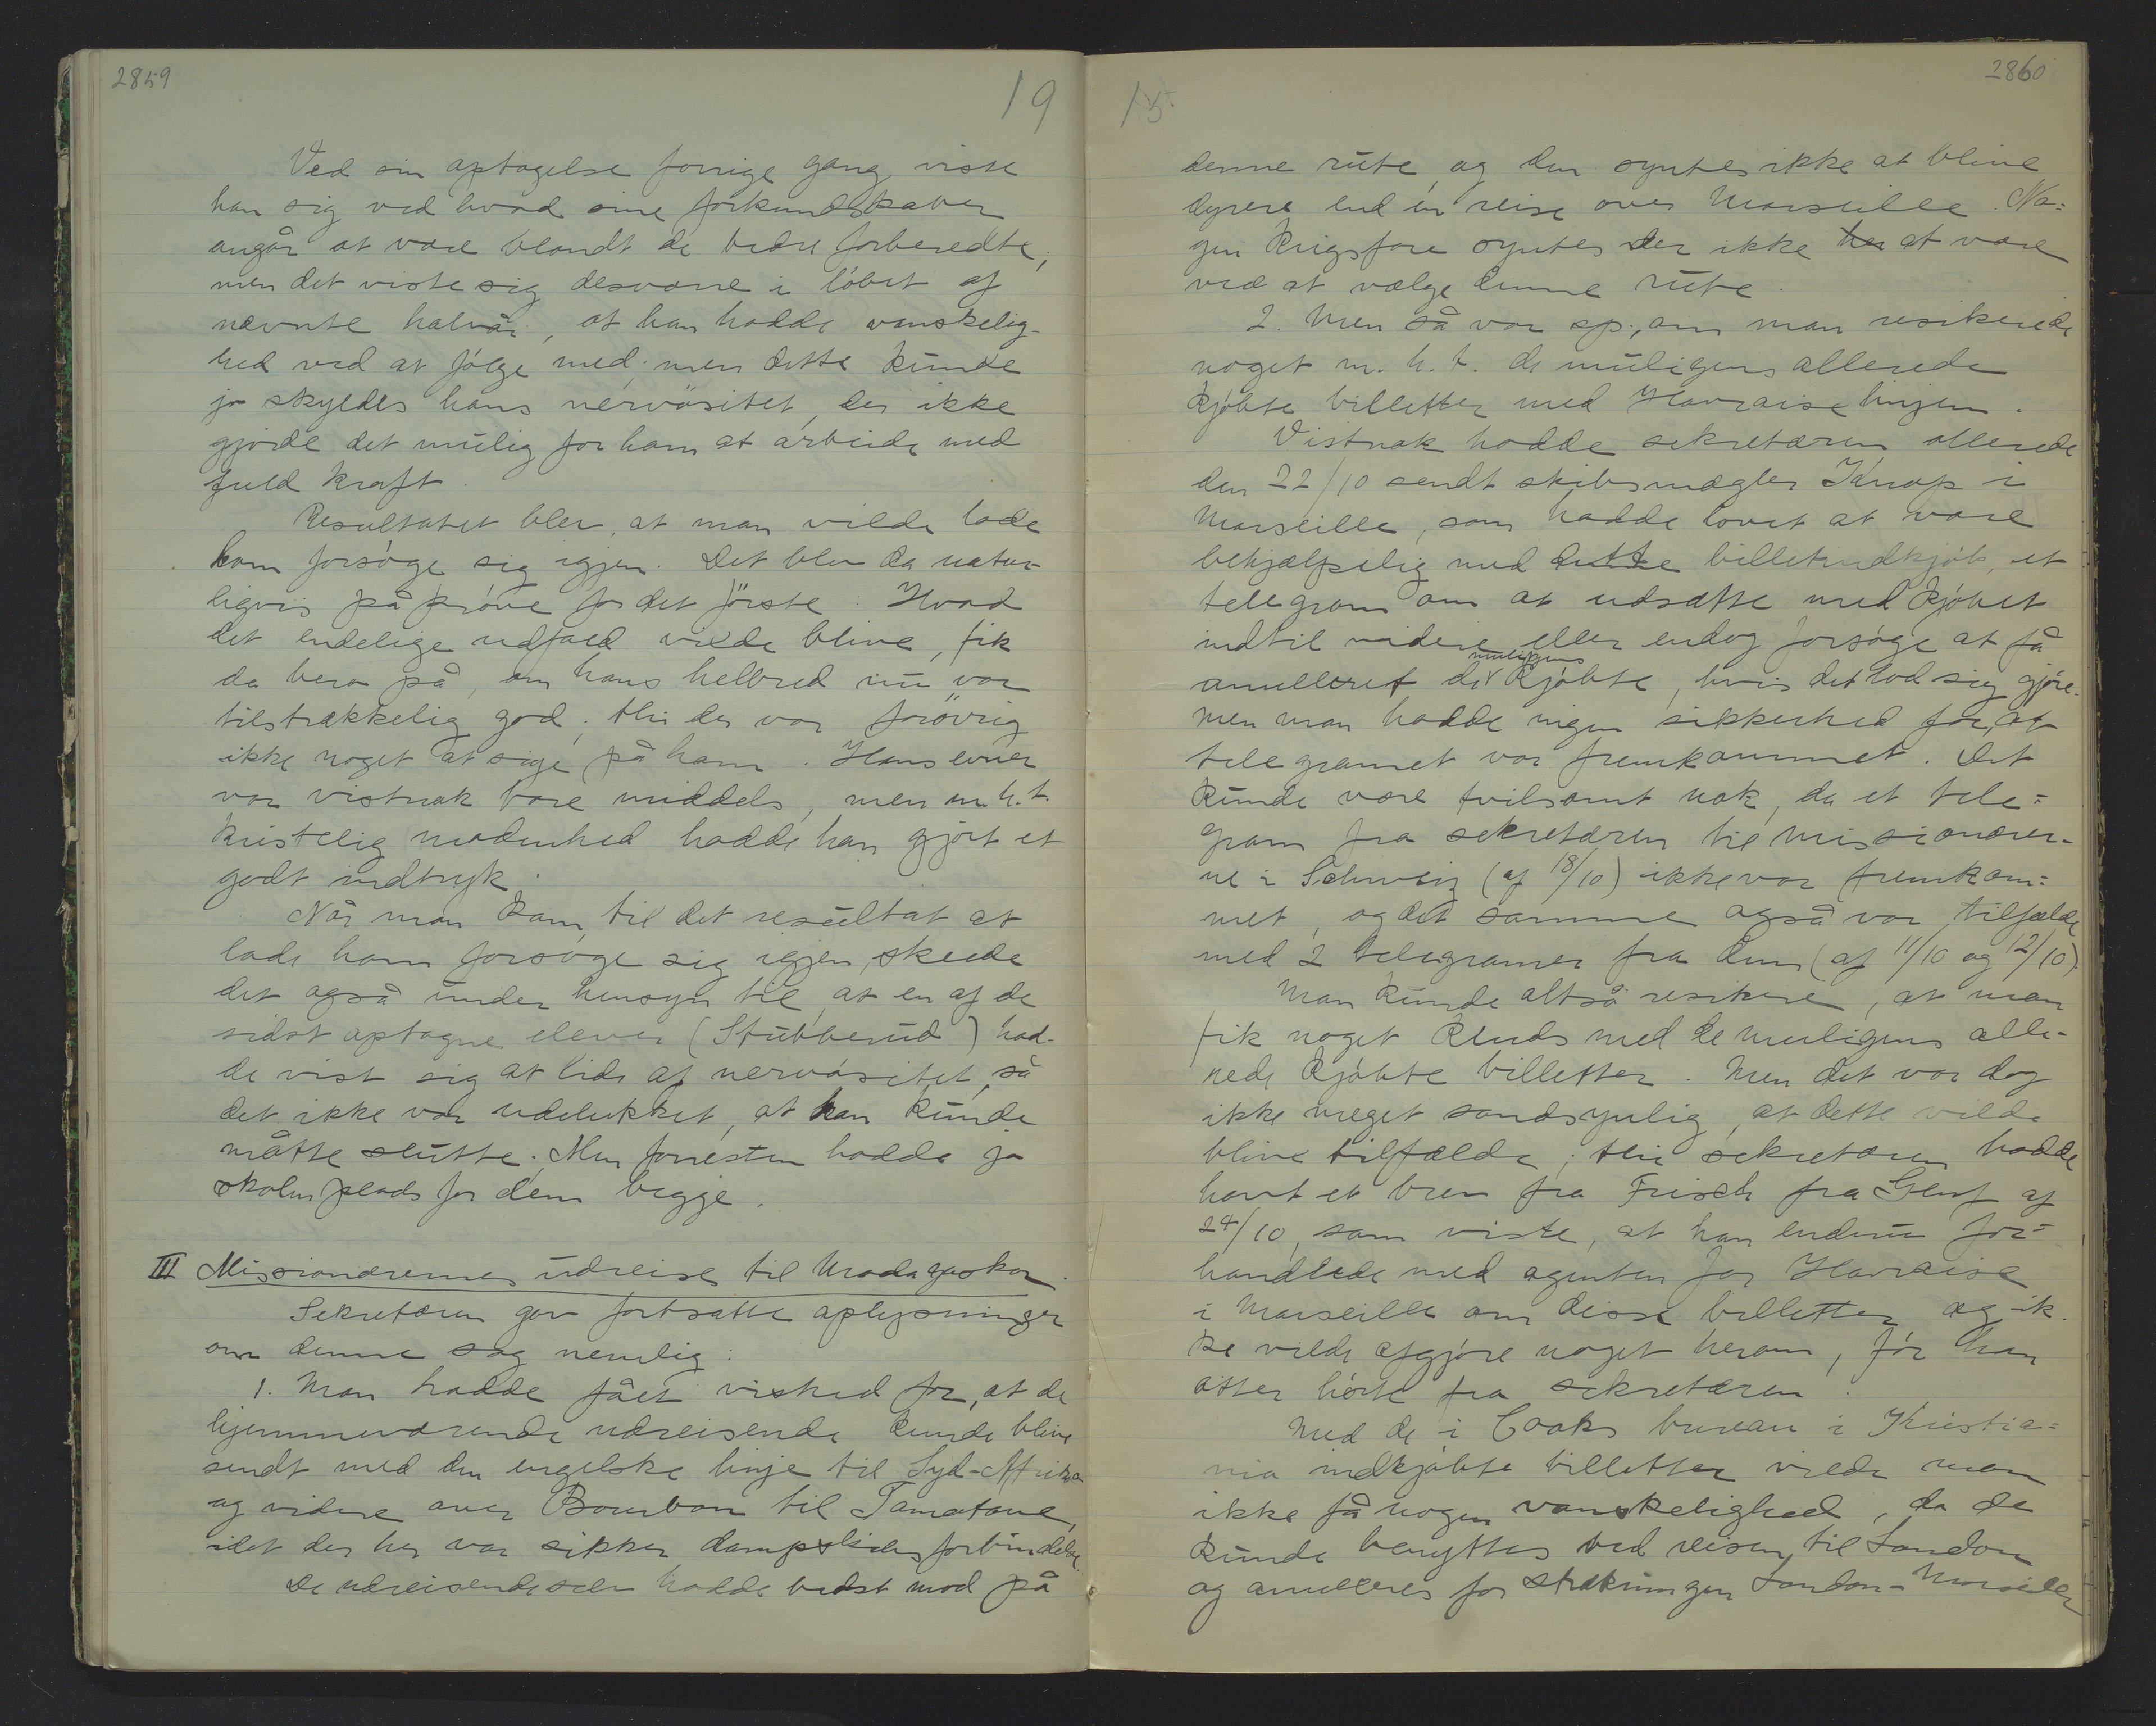 2859
19
Ved sin optagelse forrige gang viste
han sig ved hvad sine forkundskaber
angår at være blandt de bedre forberedte;
men det viste sig desværre i løbet af
nævnte halvår, at han hadde vanskelig-
hed ved at følge med; men dette kunde
jo skyldes hans nervøsitet, der ikke
gjorde det mulig for ham at arbeide med
fuld kraft.
Resultatet blev, at man vilde lade
ham forsøge sig igjen. Det blev da natur-
ligvis på prøve for det første. Hvad
det endelige udfald vilde blive, fik
da bero på, om hans helbred nu var
tilstrækkelig god; thi der var forøvrig
ikke noget at sige på ham. Hans evner
var vistnok bare middels, men m.h.t.
kristelig modenhed hadde han gjort et
godt indtryk.
Når man kom til det resultat at
lade ham forsøge sig igjen, skeede
det også under hensyn til, at en af de
sidst optagne elever (Stubberud) had-
de vist sig at lide af nervøsitet, så
det ikke var udelukket, at han kunde
måtte slutte. Men forresten hadde jo
skolen plads for dem begge.
III Missionærernes udreise til Madagaskar.
Sekretæren gav fortsatte oplysninger
om denne sag nemlig:
1. Man hadde fået vished for, at de
hjemmeværende udreisende kunde blive
sendt med den engelske linje til Syd-Afrika
og videre over Bourbon til Tamatave,
idet der her var sikker dampskibsforbindelse.
De udreisende selv hadde bedst mod på
15
2860
denne rute, og den syntes ikke at blive
dyrere end en reise over Marseille. No=
gen krigsfare syntes der ikke her at være
ved at vælge denne rute.
2. Men så var sp., om man resikerede
noget m.h.t. de muligens allerede
kjøbte billetter med Havraiselinjen.
Vistnok hadde sekretæren allerede
den 22/10 sendt skibsmægler Knap i
Marseille, som hadde lovet at være
behjælpelig med dette billetindkjøb, et
telegram om at udsætte med kjøbet
indtil videre eller endog forsøge at få
annulleret de muligens kjøbte, hvis det lod sig gjøre.
men man hadde ingen sikkerhed for, at
telegrammet var fremkommet. Det
kunde være tvilsomt nok, da et tele=
gram fra sekretæren til missionærer-
ne i Schweiz (af 18/10) ikke var fremkom=
met, og det samme også var tilfælde
med 2 telegramer fra dem (af 11/10 og 12/10).
Man kunde altså resikere, at man
fik noget kluds med de muligens alle-
rede kjøbte billetter. Men det var dog
ikke meget sandsynlig, at dette vilde
blive tilfælde; thi sekretæren hadde
havt et brev fra Frisch fra Genf af
24/10, som viste, at han endnu for=
handlede med agenten for Havraise
i Marseille om disse billetter og ik-
ke vilde afgjøre noget herom, før han
atter hørte fra sekretæren.
Med de i Cooks bureau i Kristia=
nia indkjøbte billetter vilde man
ikke få nogen vanskelighed, da de
kunde benyttes ved reisen til London
og annulleres for strækningen London-Marseille